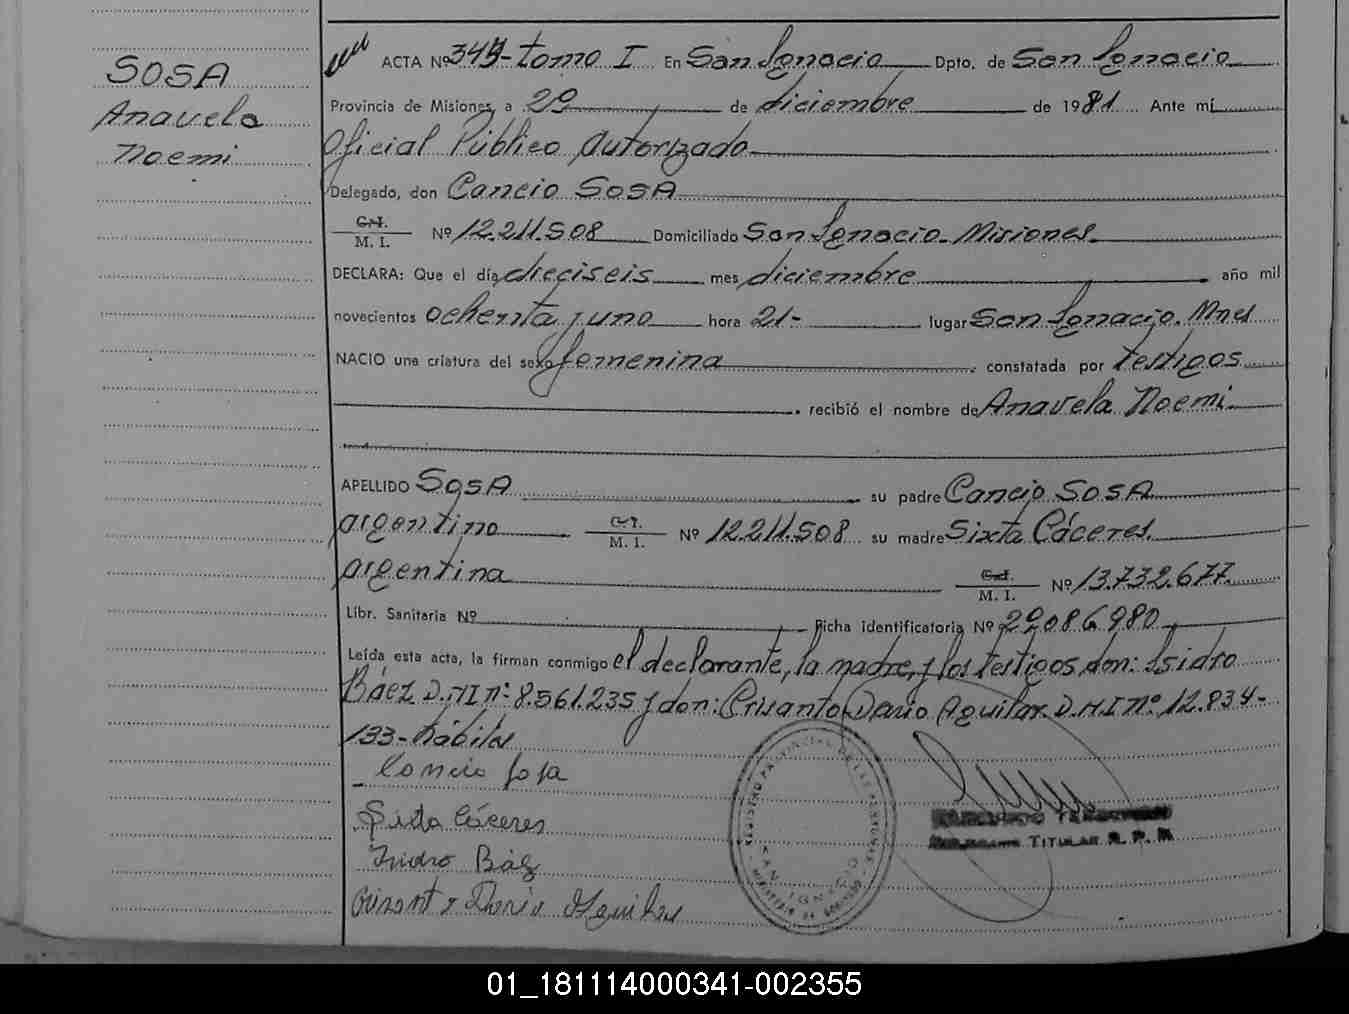 SOSA
Anavela
Noemi
ACTA Nº 344- tomo I En San Ignacio Dpto. de San Ignacio
Provincia de Misiones, a 29 de diciembre de 1981 Ante mí
Oficial Público Autorizado
Delegado, don Cancio SOSA
C. I.
M. I. Nº 12.211.508 Domiciliado San Ignacio. Misiones.
DECLARA: Que el día dieciseis mes diciembre año mil
novecientos ochenta y uno hora 21- lugar San Ignacio. Mnes
NACIO una criatura del sexo femenina constatada por testigos
recibió el nombre de Anavela Noemi.
APELLIDO SOSA su padre Cancio SOSA
argentino C. I.
M. I. Nº 12.211.508 su madre Sixta Cáceres.
argentina C. I.
M. I. Nº 13.732.677.
Libr. Sanitaria Nº Ficha identificatoria Nº 29.086.980
Leída esta acta, la firman conmigo el declarante, la madre, y los testigos don: Isidro
Báez D.N.I nº: 8.561.235 y don: Crisanto Dario Aguilar. D.N.I nº 12.834-
133- hábiles
Cancio Sosa
Sista Cáceres
Isidro Báez
Crisanto Dario Aguilar
REGISTRO PROVINCIAL DE LAS PERSONAS
SAN IGNACIO
MINISTERIO DE GOBIERNO
TITULAR R. P. P.
01_181114000341-002355